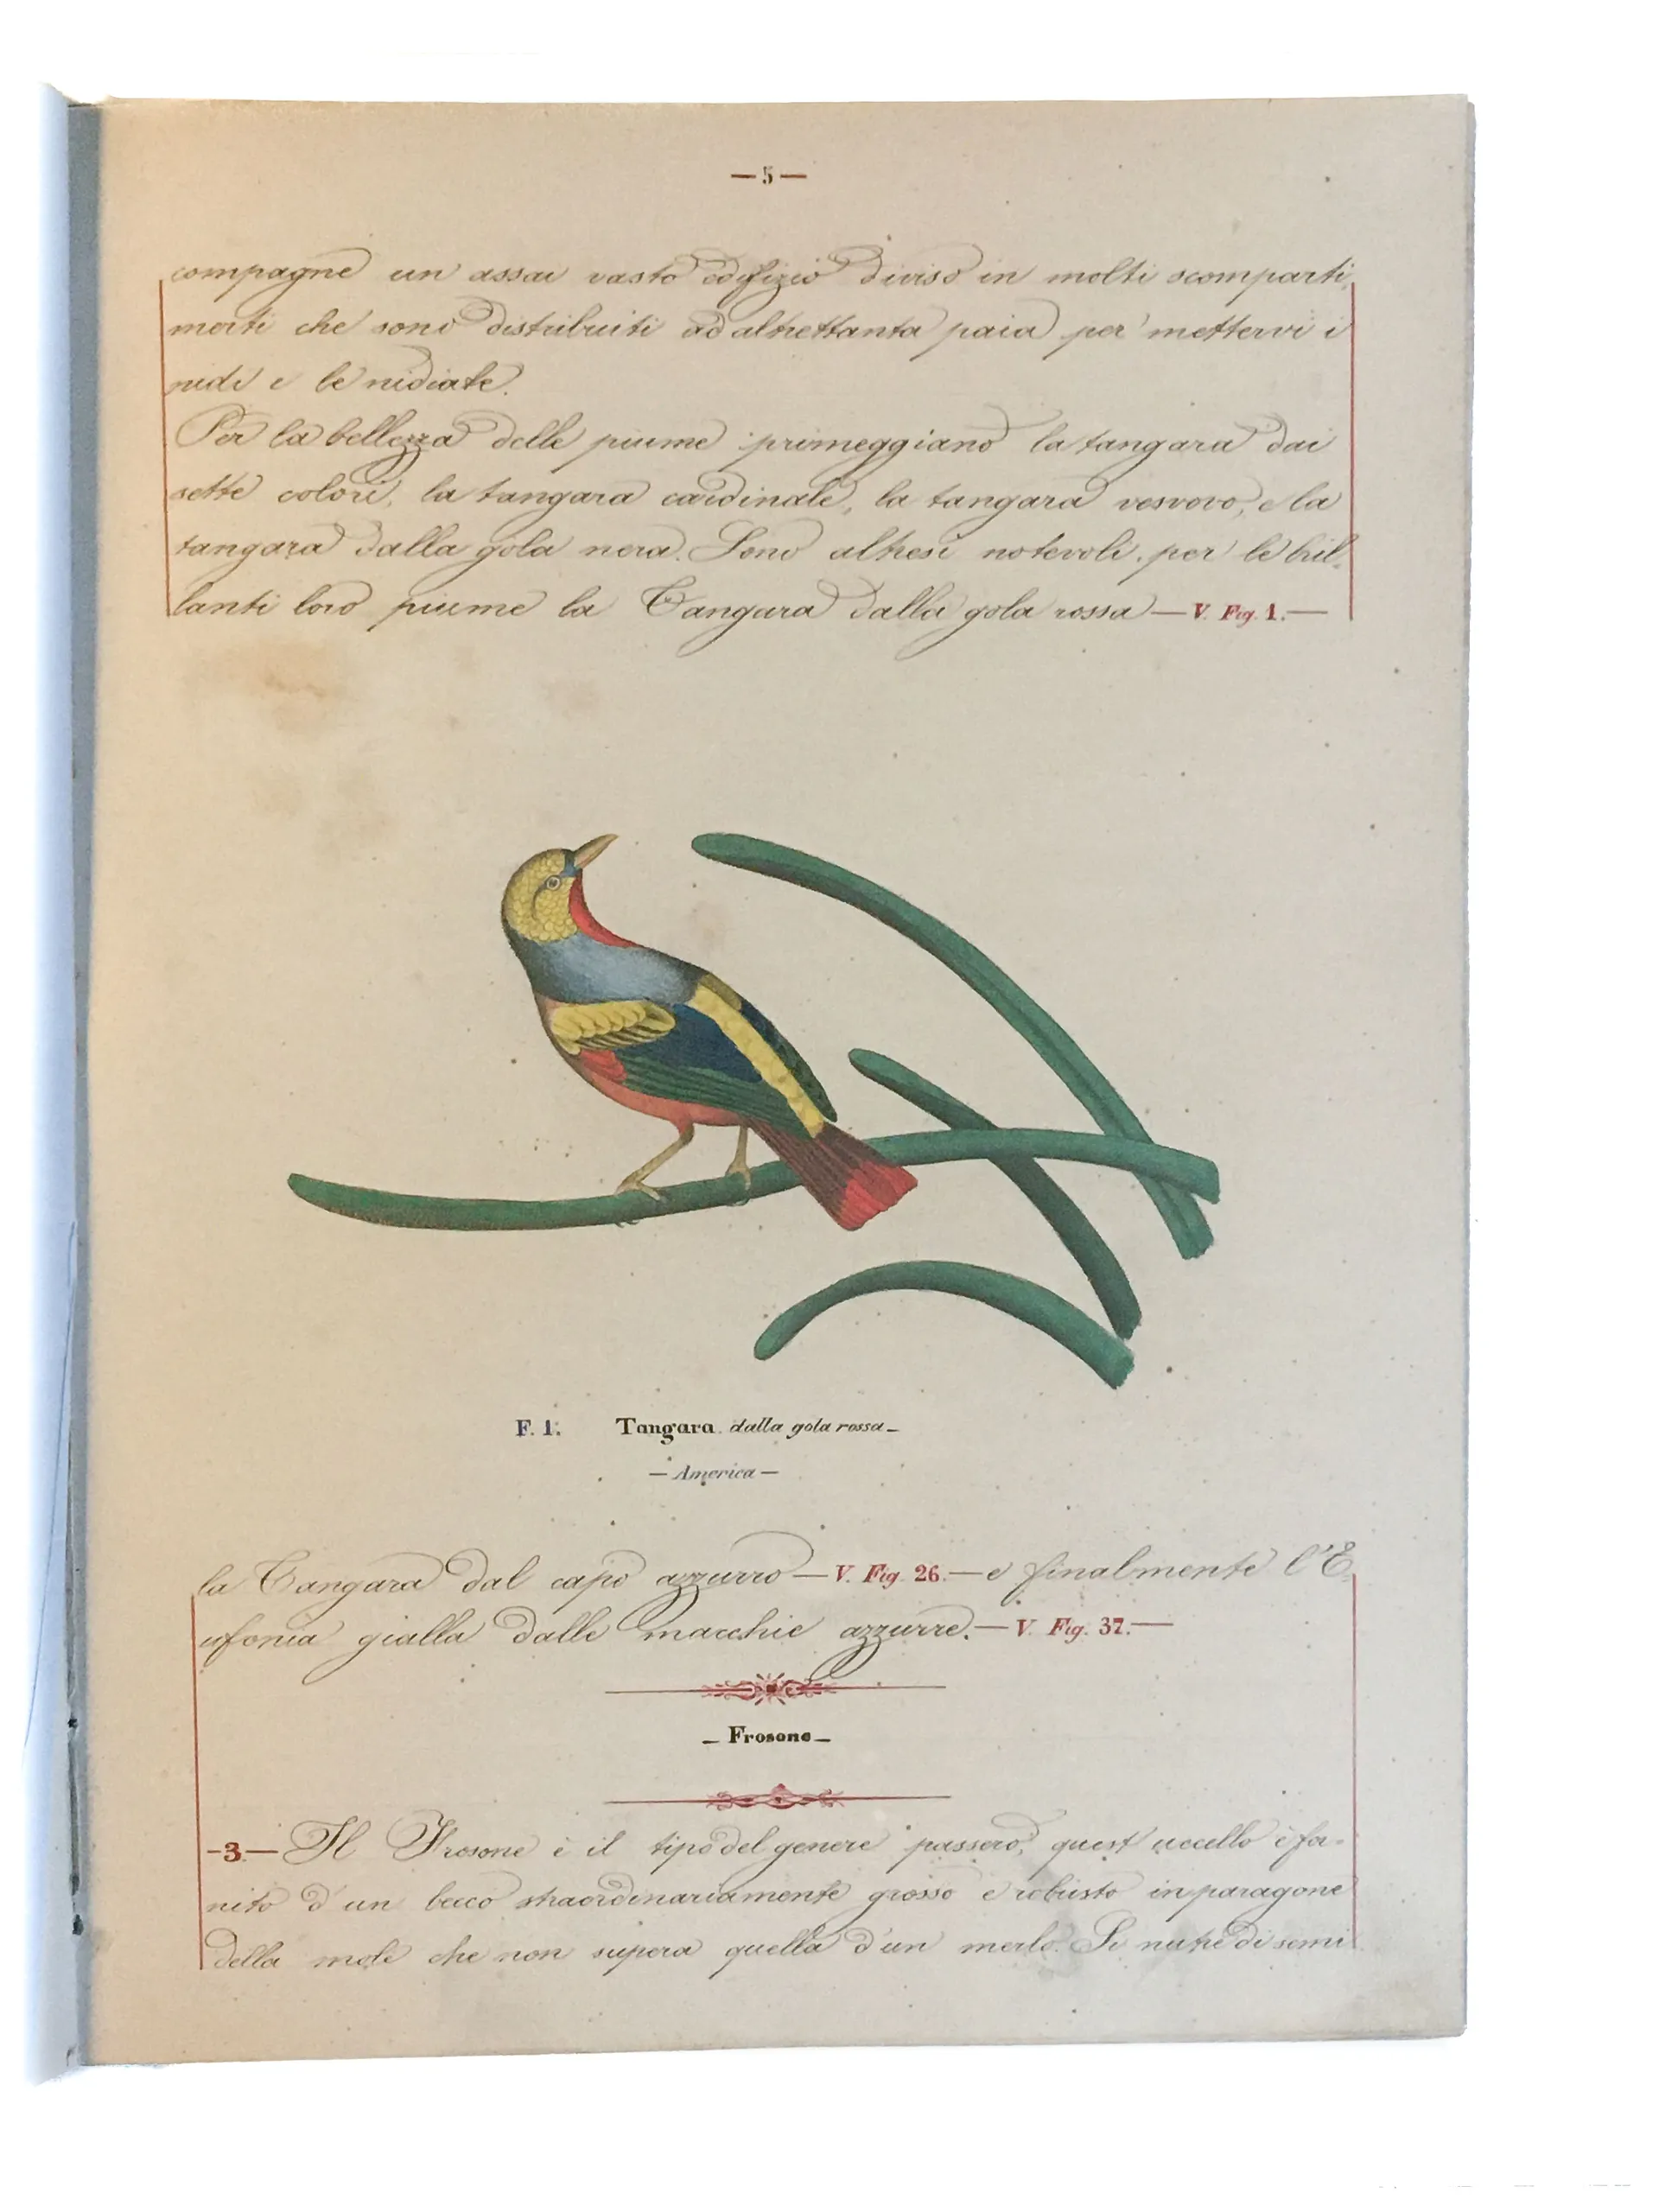 — 5 —
compagne un assai vasto edifizio diviso in molti scomparti,
menti che sono distribuiti ad altrettanta paia per mettervi i
nidi e le nidiate.
Per la bellezza delle piume primeggiano la tangara dai
sette colori, la tangara cardinale, la tangara vescovo, e la
tangara dalla gola nera. Sono altresì notevoli per le bril-
lanti loro piume la Tangara dalla gola rossa — V. Fig. 1. —
F. 1. Tangara dalla gola rossa —
— America —
la Tangara dal capo azzurro — V. Fig. 26. — e finalmente l'E-
ufonia gialla dalle macchie azzurre. — V. Fig. 37. —
— Frosone —
-3.— Il Frosone è il tipo del genere passero, quest'uccello è for-
nito d'un becco straordinariamente grosso e robusto in paragone
della mole che non supera quella d'un merlo. Si nutre di semi